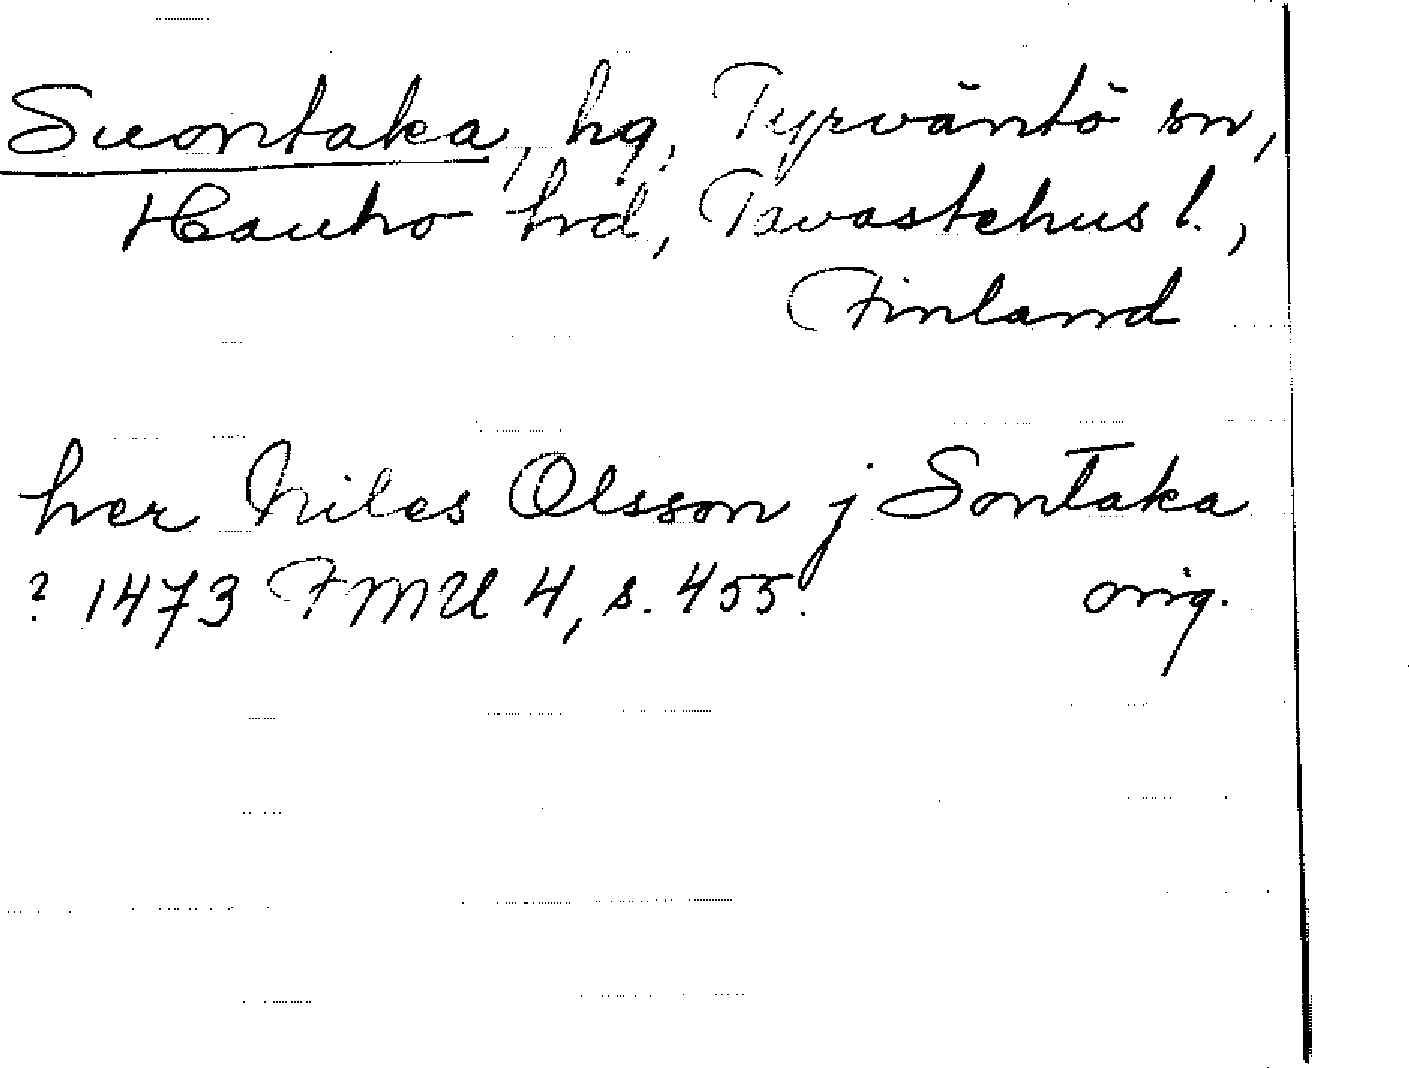 Suontaka, hg, Tyrväntö sn,
Hauho hrd, Tavastehus l.,
Finland
her Niles Olsson j Sontaka
? 1473 FMU 4, s. 455. orig.